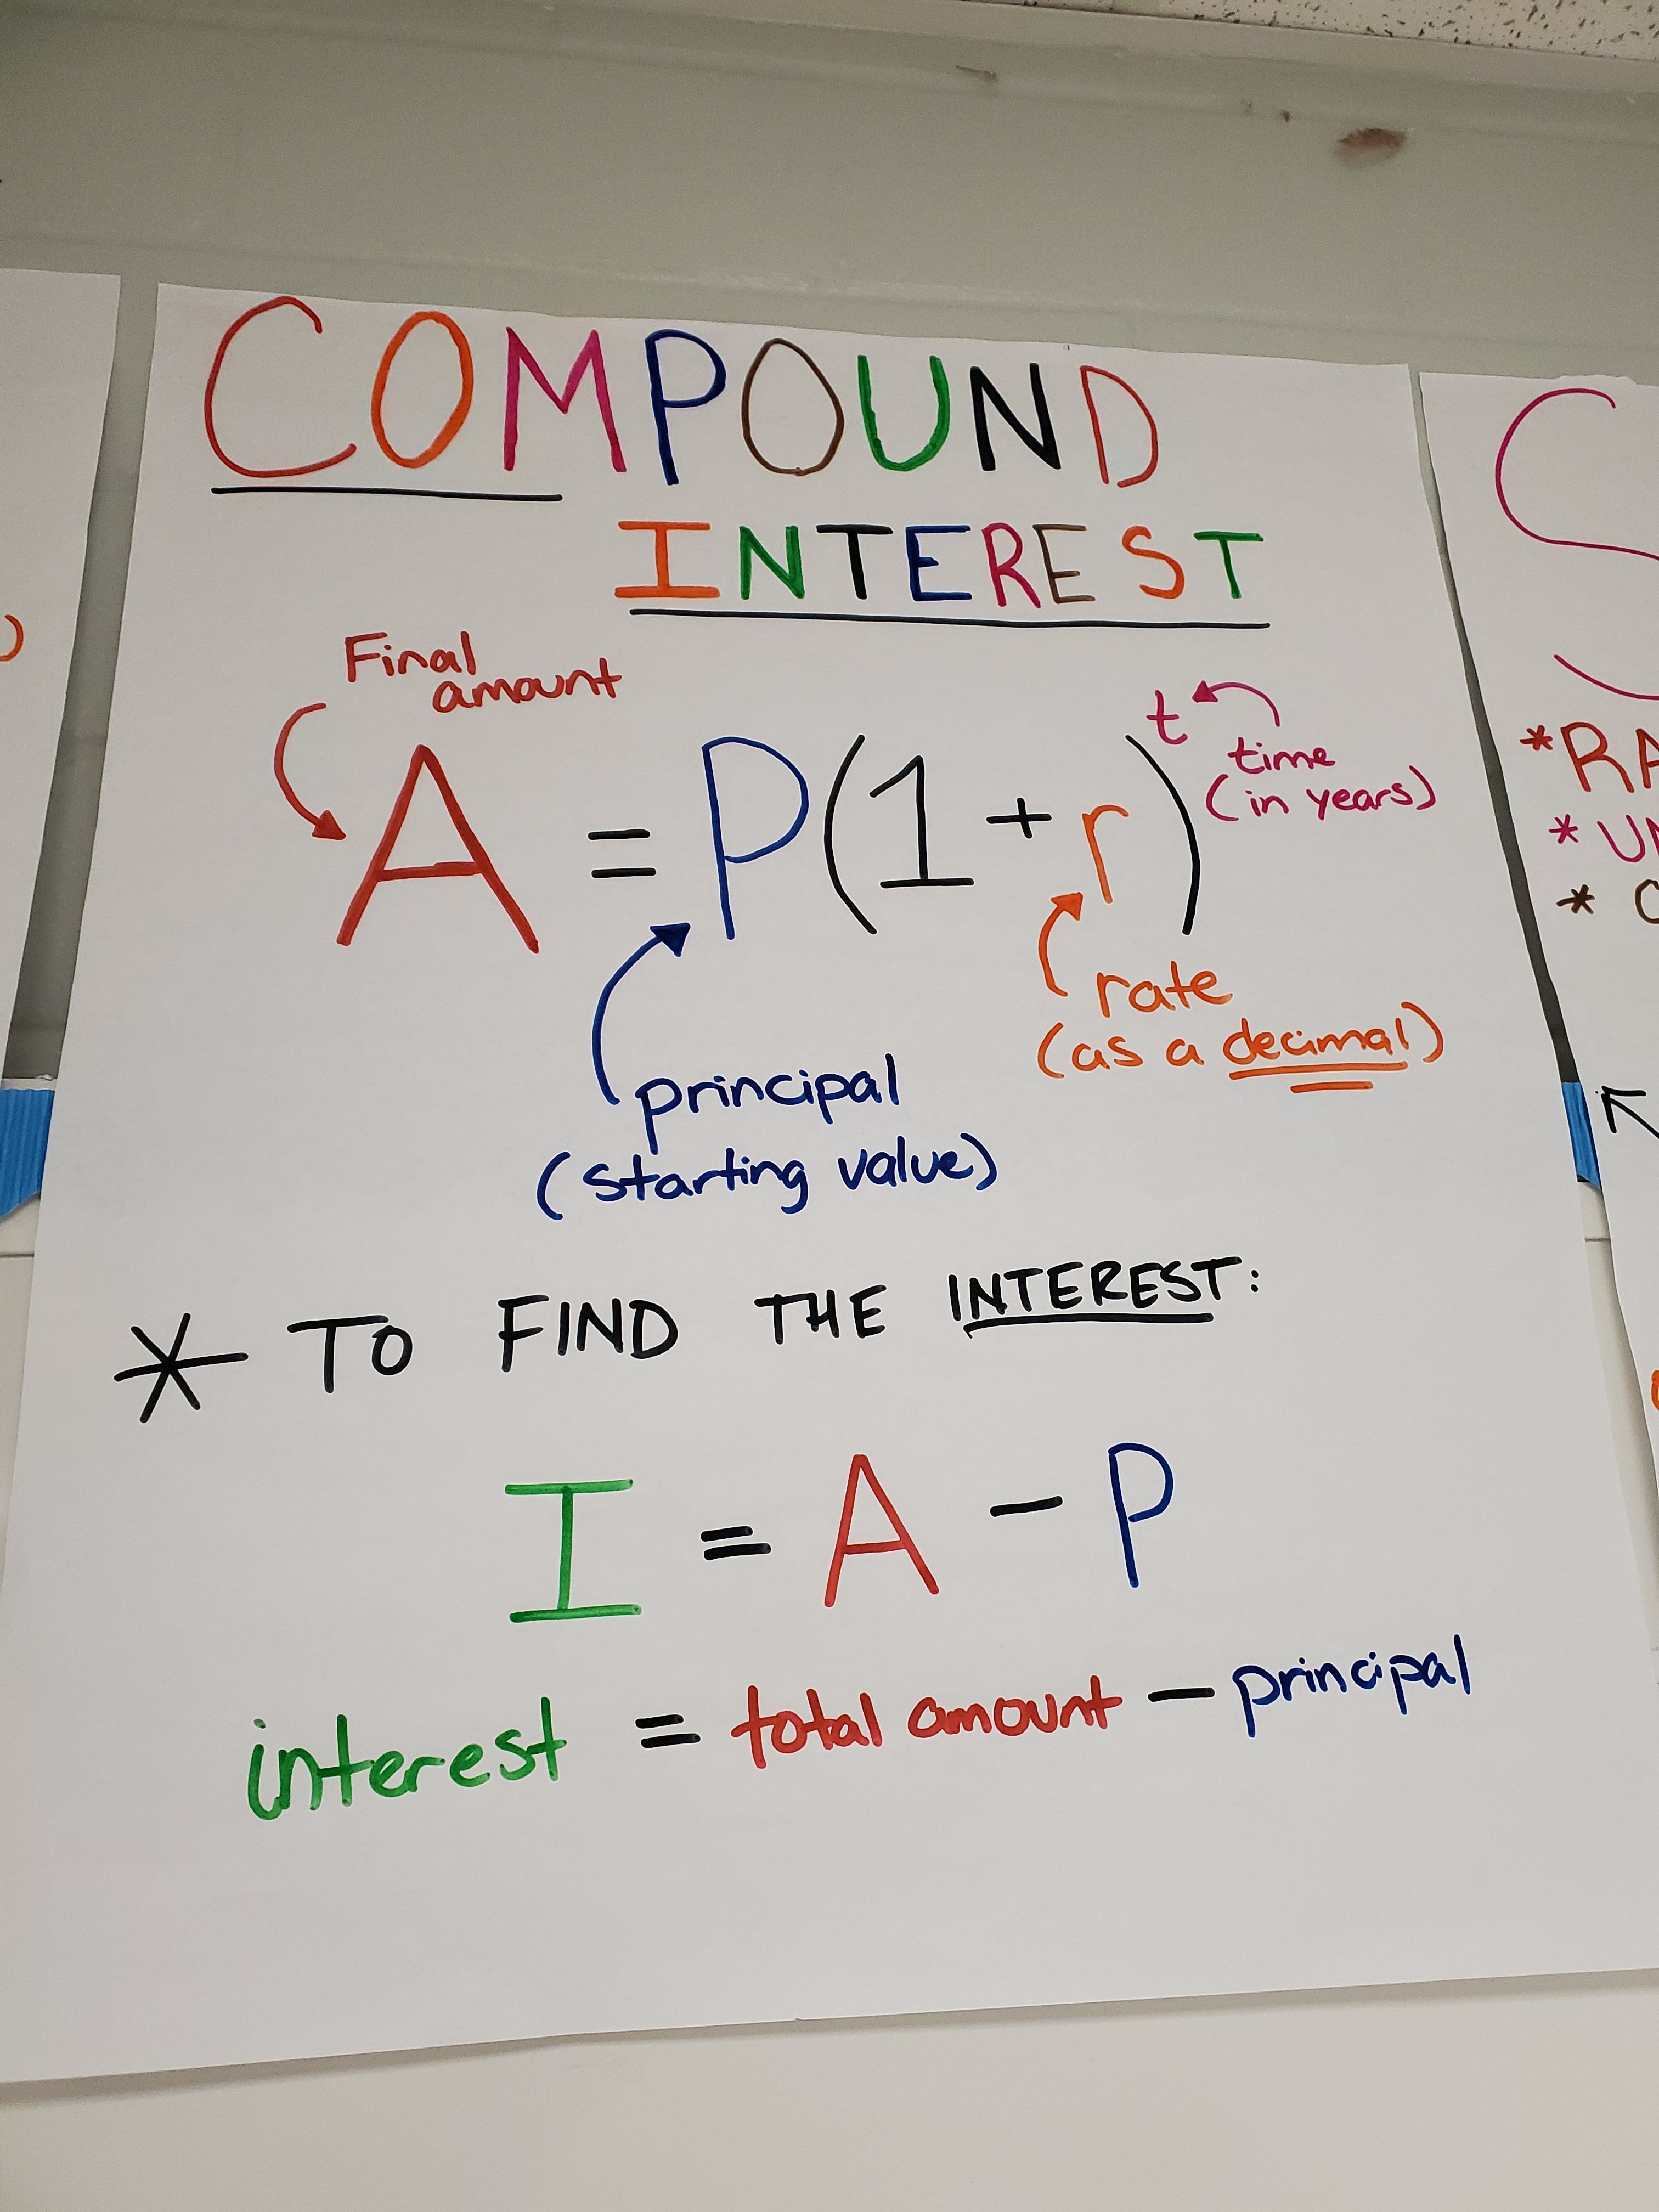 COMPOUND
INTEREST
Final
amount
A = P(1 + r)^t
time
(in years)
rate
(as a decimal)
principal
(starting value)
* TO FIND THE INTEREST:
I = A - P
interest = total amount - principal
*RA
* UN
* C